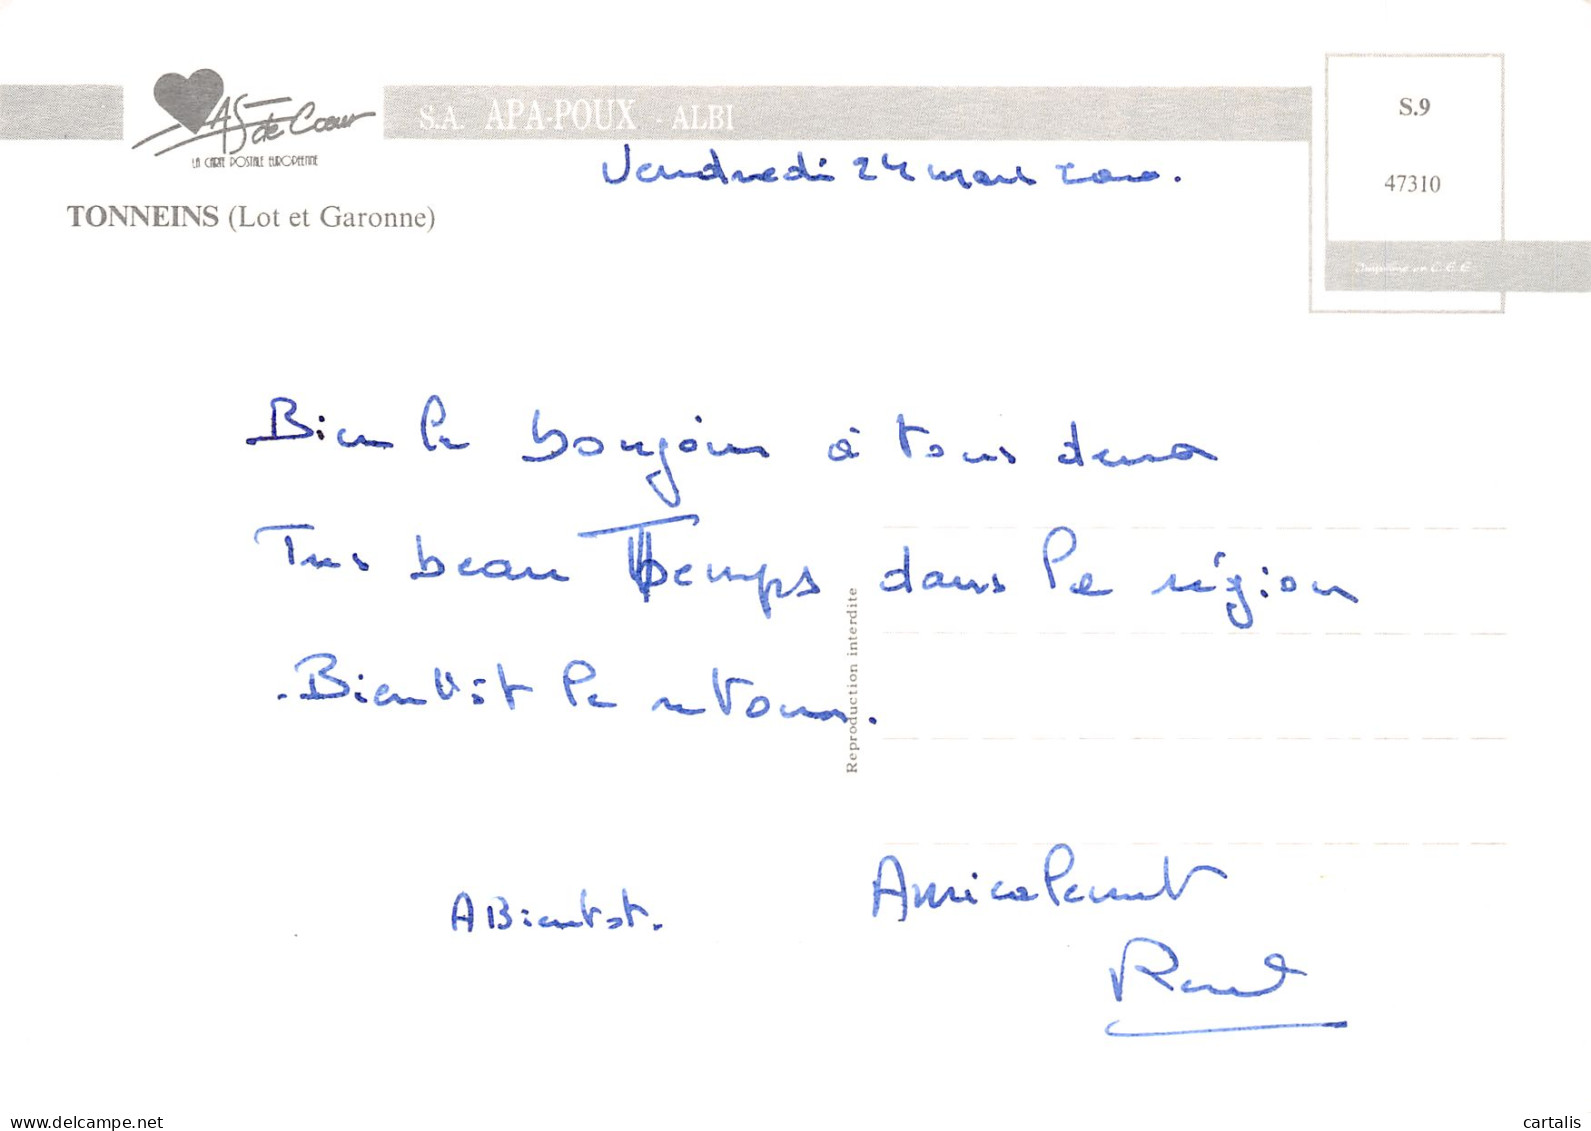 AS de Cœur
LA CARTE POSTALE EUROPÉENNE
S.A. APA-POUX - ALBI
S.9
47310
Imprimé en C.E.E
TONNEINS (Lot et Garonne)
Vendredi 24 mars 2000.
Bien le bonjour à tous deux
Très beau Temps dans la région
Reproduction interdite
. Bientôt le retour.
A Bientôt.
Amicalement
my-wallcards.delcampe.net
cartalis